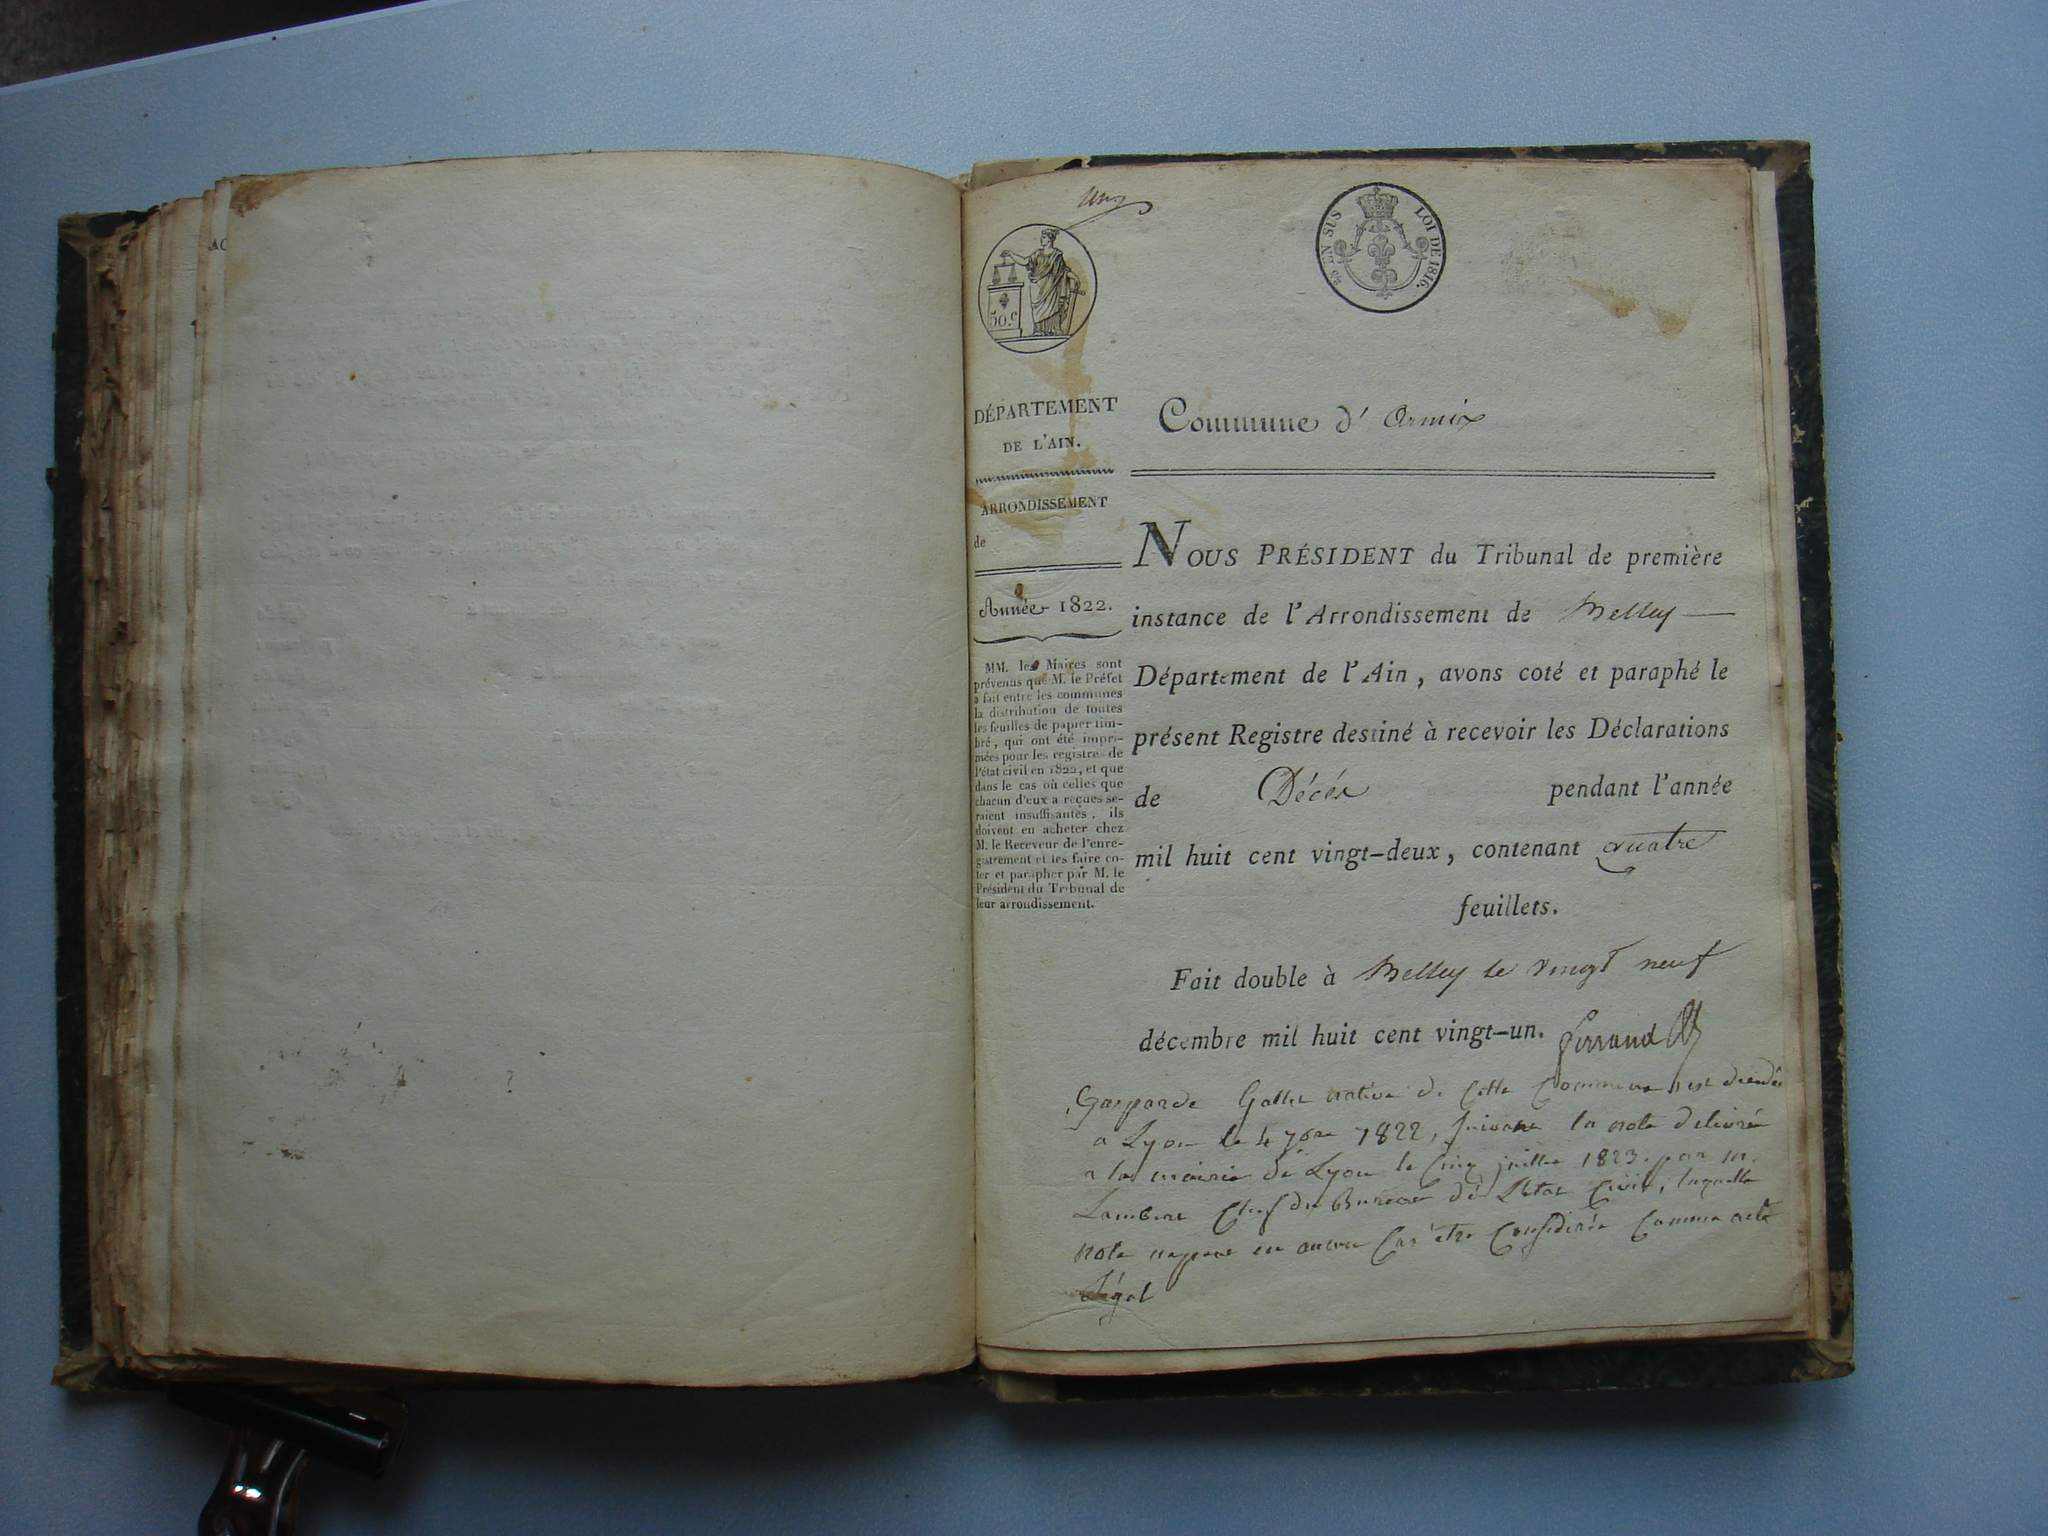 un
50.c
EN SUS LOI DE 1816.
DÉPARTEMENT
DE L'AIN.
ARRONDISSEMENT
de
Année 1822.
MM. les Maires sont
prévenus que M. le Préfet
a fait entre les communes
la distribution de toutes
les feuilles de papier tim-
bré, qui ont été impri-
mées pour les registres de
l'état civil en 1822, et que
dans le cas où celles que
chacun d'eux a reçues se-
raient insuffisantes, ils
doivent en acheter chez
M. le Receveur de l'enre-
gistrement et les faire co-
ter et parapher par M. le
Président du Tribunal de
leur arrondissement.
Commune d' Armix
NOUS PRÉSIDENT du Tribunal de première
instance de l'Arrondissement de Belley
Département de l'Ain, avons coté et paraphé le
présent Registre destiné à recevoir les Déclarations
de Décès pendant l'année
mil huit cent vingt-deux, contenant quatre
feuillets.
Fait double à Belley le vingt neuf
décembre mil huit cent vingt-un. Ferrand
Gasparde Gallet native de Cette Commune est
a Lyon le 4 7bre 1822, suivant la note délivrée
a la mairie de Lyon le cinq juillet 1823. par m.
Lambert Chef du Bureau de L'état Civil, laquelle
note ne peut en aucun Cas être Considérée Comme acte
Légal